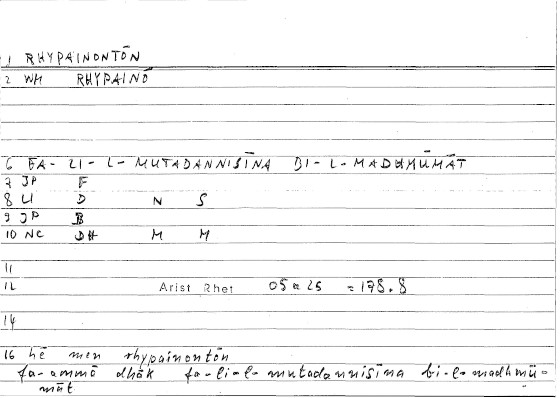 1 RHYPAINONTŌN
2 WH RHYPAINŌ
6 FA-LI-L-MUTADANNISĪNA BI-L-MADHMŪMĀT
7 JP F
8 LI D N S
9 JP B
10 NC DH M M
11
12 Arist Rhet 05 a 25 = 178.8
14
16 hē men rhypainontōn
fa-ammā dhāk fa-li-l-mutadannisīna bi-l-madhmū=
māt